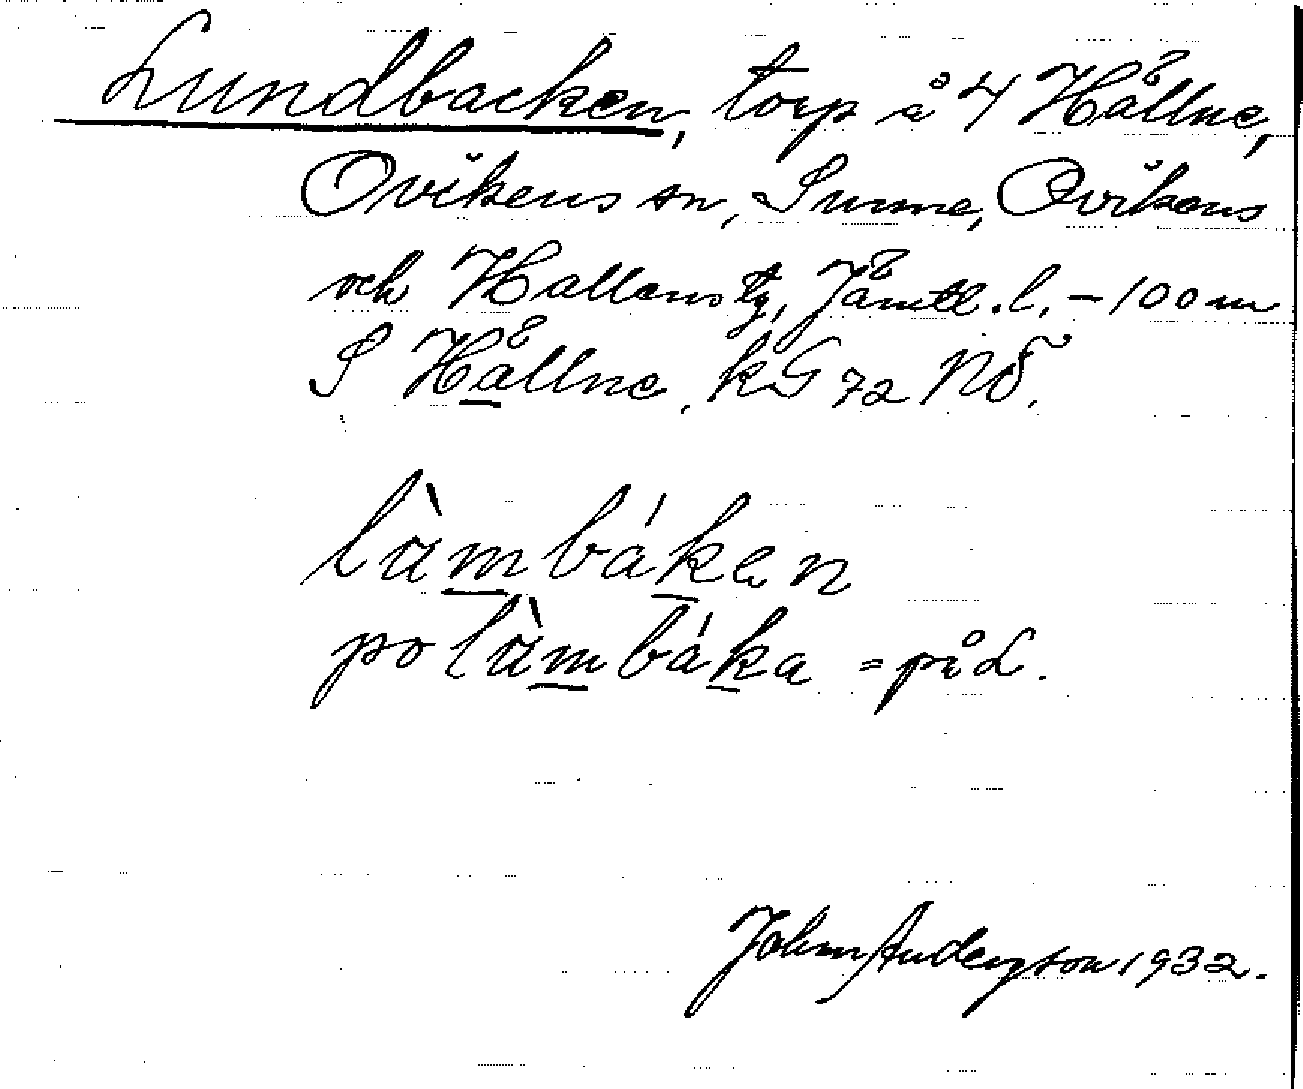 Lundbacken, torp å 4 Hållne,
Ovikens sn, Sunne, Ovikens
och Hallens tg, Jämtl. l. – 100 m
S Hållne. kG 72 NÖ.
làmbáken
po làmbáka = på L.
John Anderson 1932.